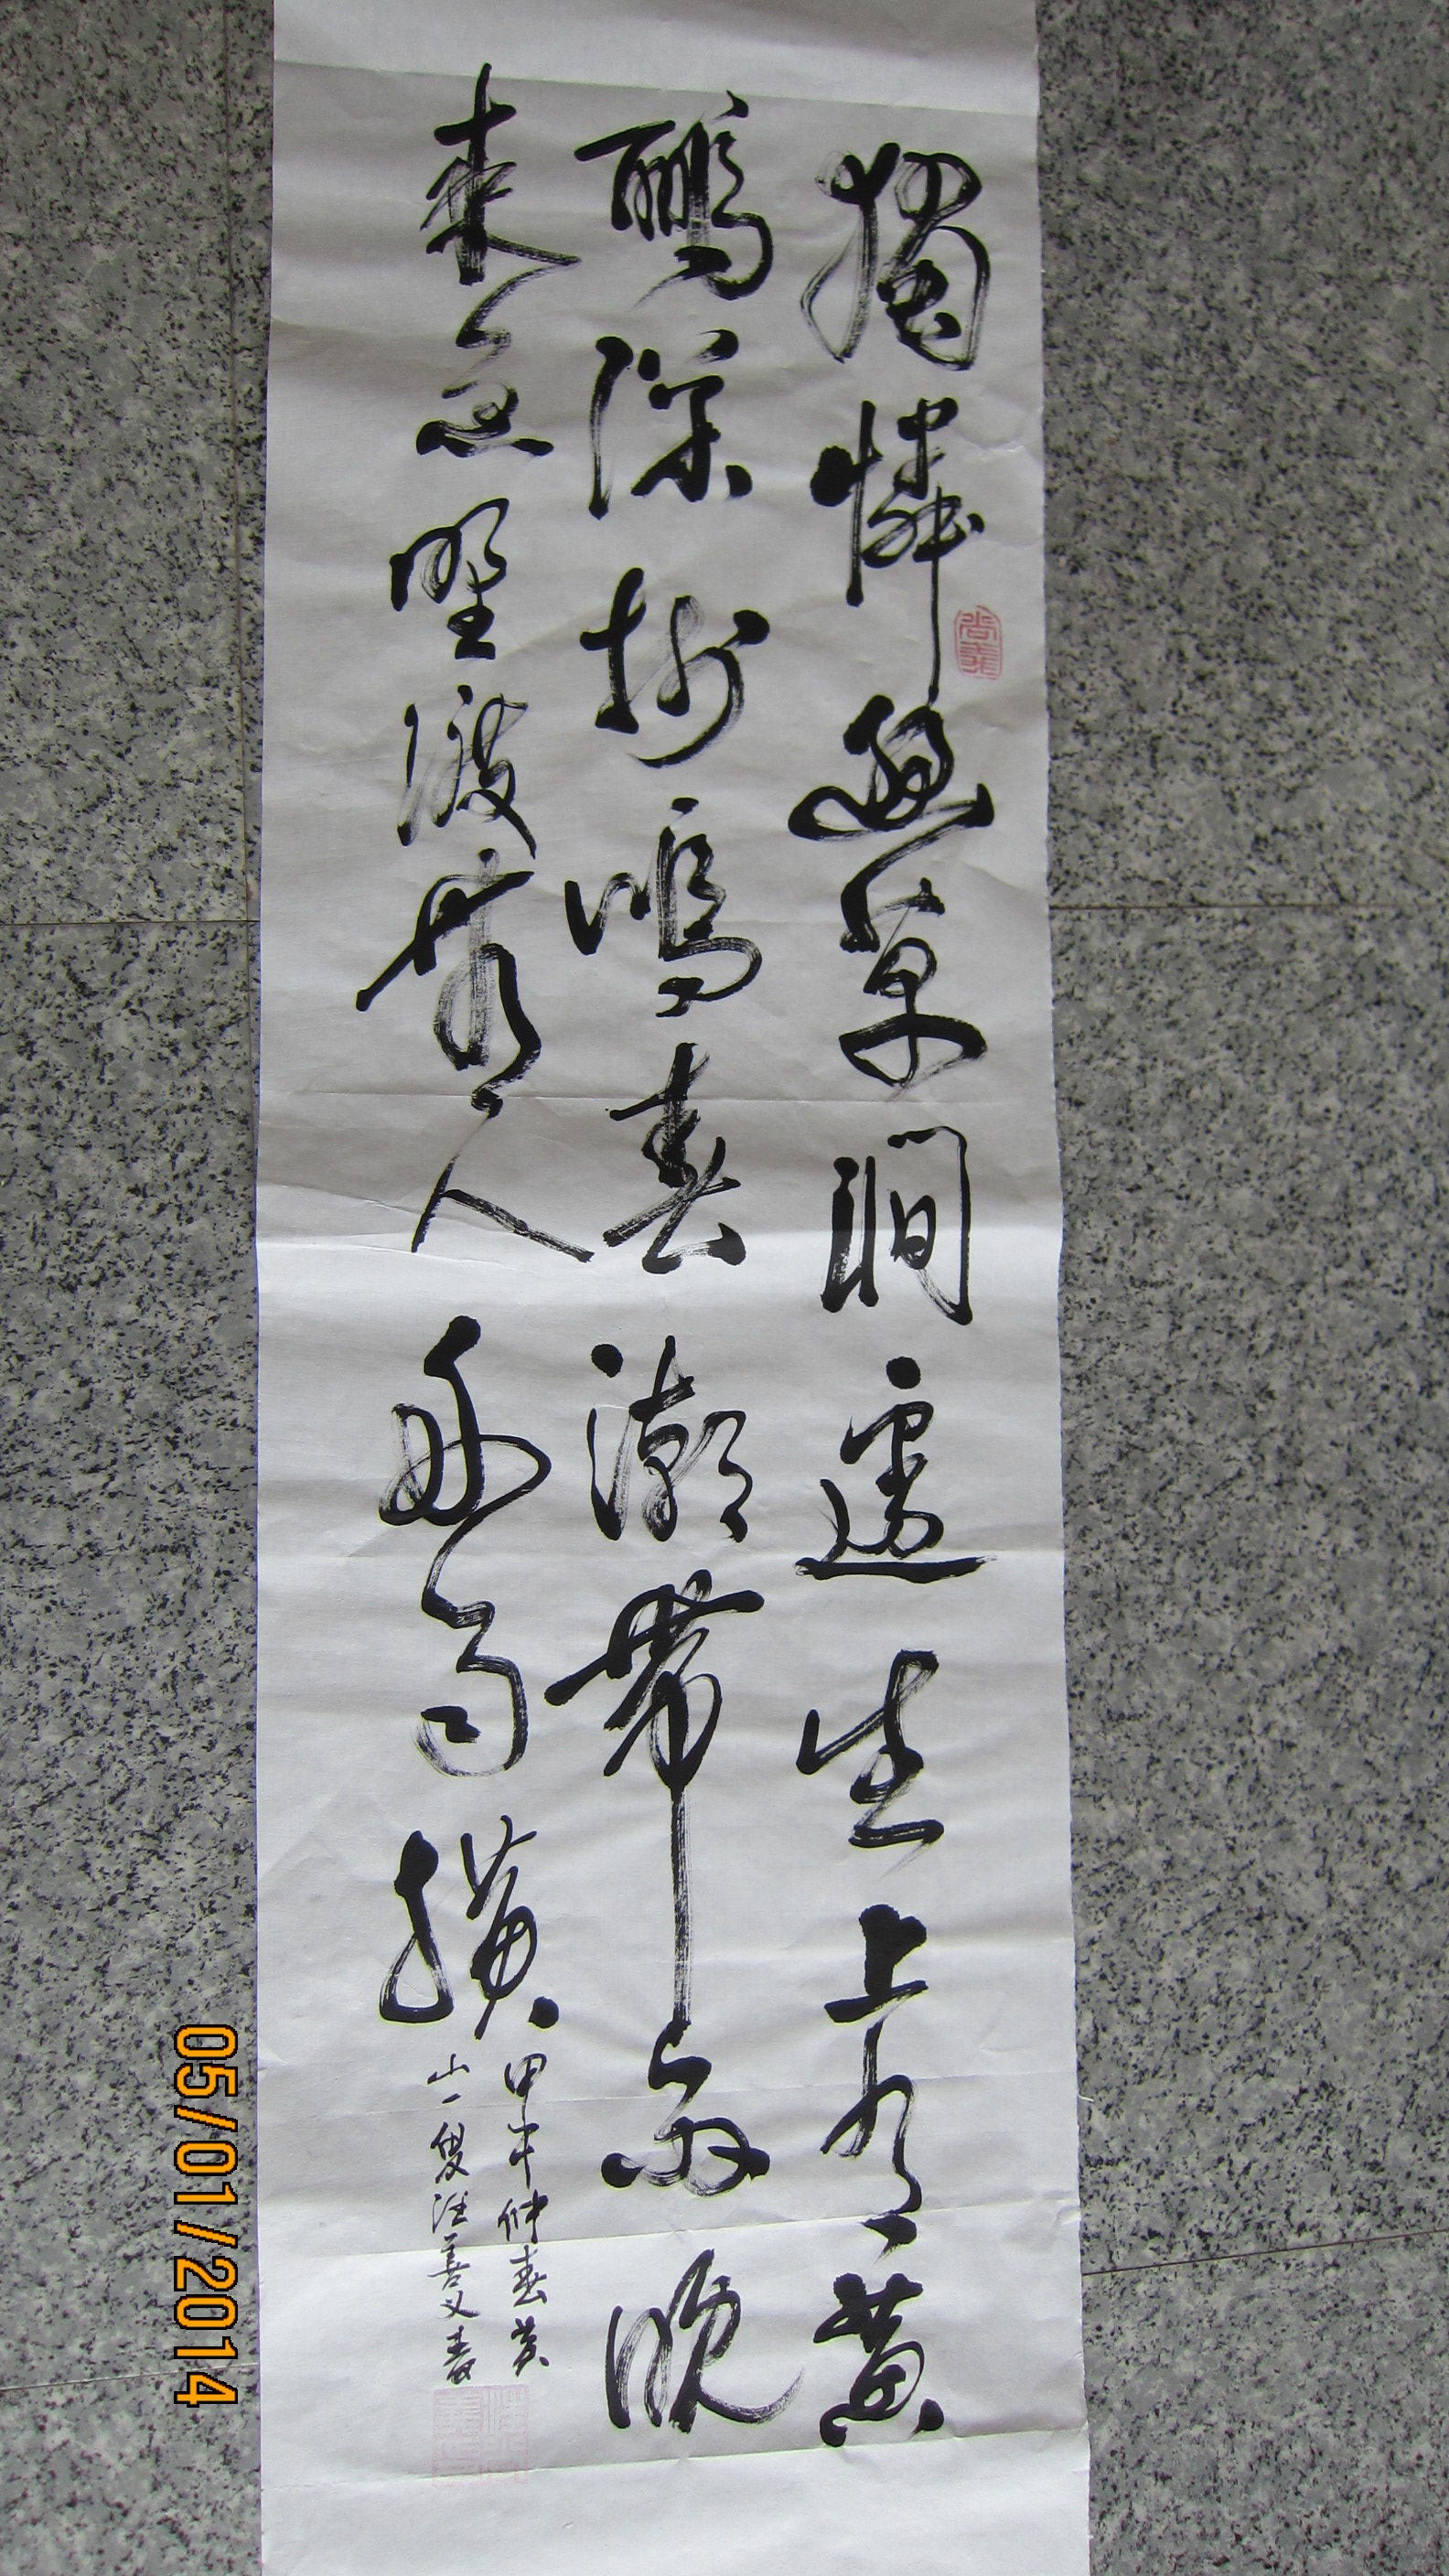 獨憐幽草澗邊生上有黃
鸝深樹鳴春潮帶雨晚
來急野渡無人舟自橫
甲午仲春黃
山一叟汪善書
05/01/2014